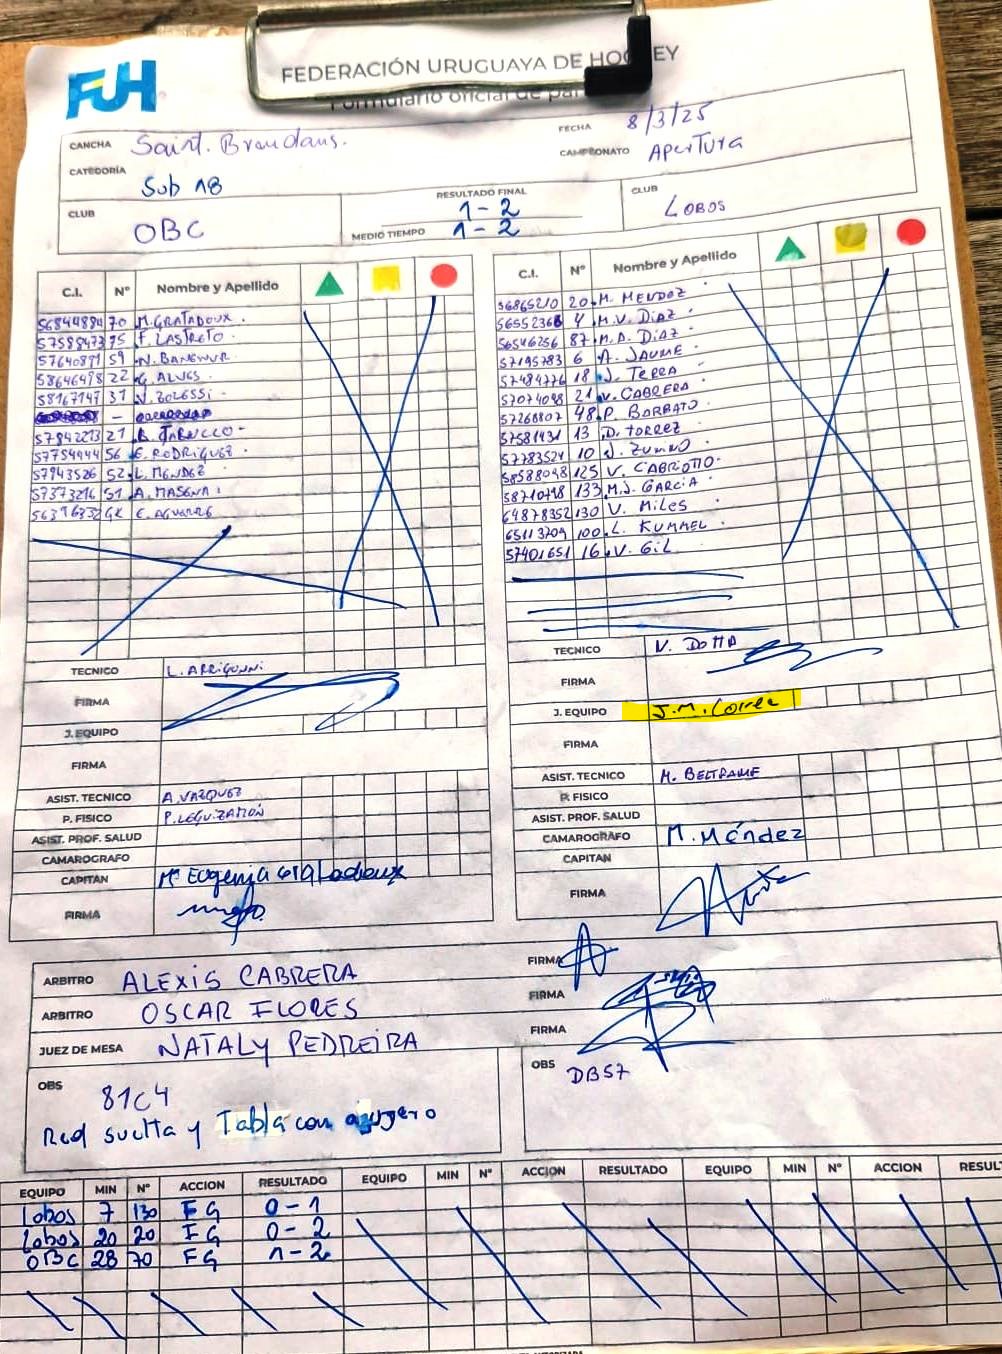 FUH
FEDERACIÓN URUGUAYA DE HOCKEY
Formulario oficial de par
CANCHA Saint. Brendans.
FECHA 8/3/25
CATEGORÍA Sub 18
CAMPEONATO APERTURA
CLUB OBC
RESULTADO FINAL 1-2
MEDIO TIEMPO 1-2
CLUB LOBOS
C.I. Nº Nombre y Apellido
56844884 70 M. GRATADOUX
57588473 95 F. LASTRETO
57640891 59 N.
58646498 22 G. ALVES
58167147 31 V. ZOLESSI
57842213 21
57754444 56 E. RODRIGUEZ
57943526 52 L. MENDEZ
57373216 51 A. MASENA
GK E. AGUERRE
TECNICO L. ARRIGONNI
FIRMA
J. EQUIPO
FIRMA
ASIST. TECNICO A. VAZQUEZ
P. FISICO P. LEGUIZAMÓN
ASIST. PROF. SALUD
CAMAROGRAFO
CAPITAN Mª Eugenia
FIRMA
C.I. Nº Nombre y Apellido
56865210 20 M. MENDOZ
56552366 4 M.V. DIAZ
56546256 87 M.A. DIAZ
57195783 6 A. JAUME
57484776 18 J. TERRA
57074098 21 V. CABRERA
57268807 48 P. BARBATO
57581431 13 D. TORREZ
57783524 10 J. ZUNINO
58588098 125 V. CABRIOTTO
58710798 133 M.J. GARCIA
64878352 130 V. MILES
65113709 100 L. KUMMEL
57401651 16 V. GIL
TECNICO V. DOTTA
FIRMA
J. EQUIPO J.M. Correa
FIRMA
ASIST. TECNICO M. BELTRAME
P. FISICO
ASIST. PROF. SALUD
CAMAROGRAFO M. Méndez
CAPITAN
FIRMA
ARBITRO ALEXIS CABRERA FIRMA
ARBITRO OSCAR FLORES FIRMA
JUEZ DE MESA NATALY PEDREIRA FIRMA
OBS 81C4
Red suelta y Tabla con agugero
OBS DBS7
EQUIPO MIN Nº ACCION RESULTADO EQUIPO MIN Nº ACCION RESULTADO EQUIPO MIN Nº ACCION RESUL
Lobos 7 130 FG 0-1
Lobos 20 20 FG 0-2
OBC 28 70 FG 1-2